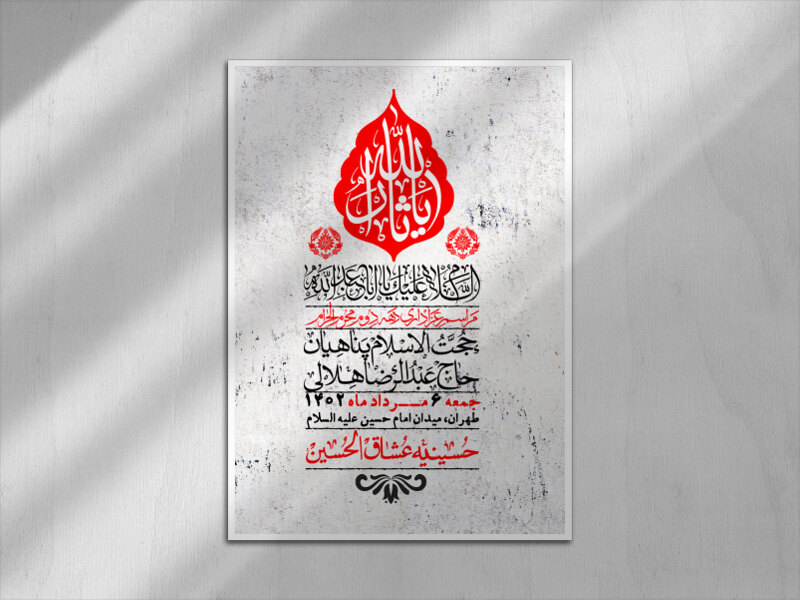 یا ثارالله
السلام علیک یا اباعبدالله
مراسم عزاداری دهه دوم محرم الحرام
حجت الاسلام پناهیان
حاج عبدالرضا هلالی
جمعه ۶ مرداد ماه ۱۴۰۲
طهران، میدان امام حسین علیه السلام
حسینیه عشاق الحسین